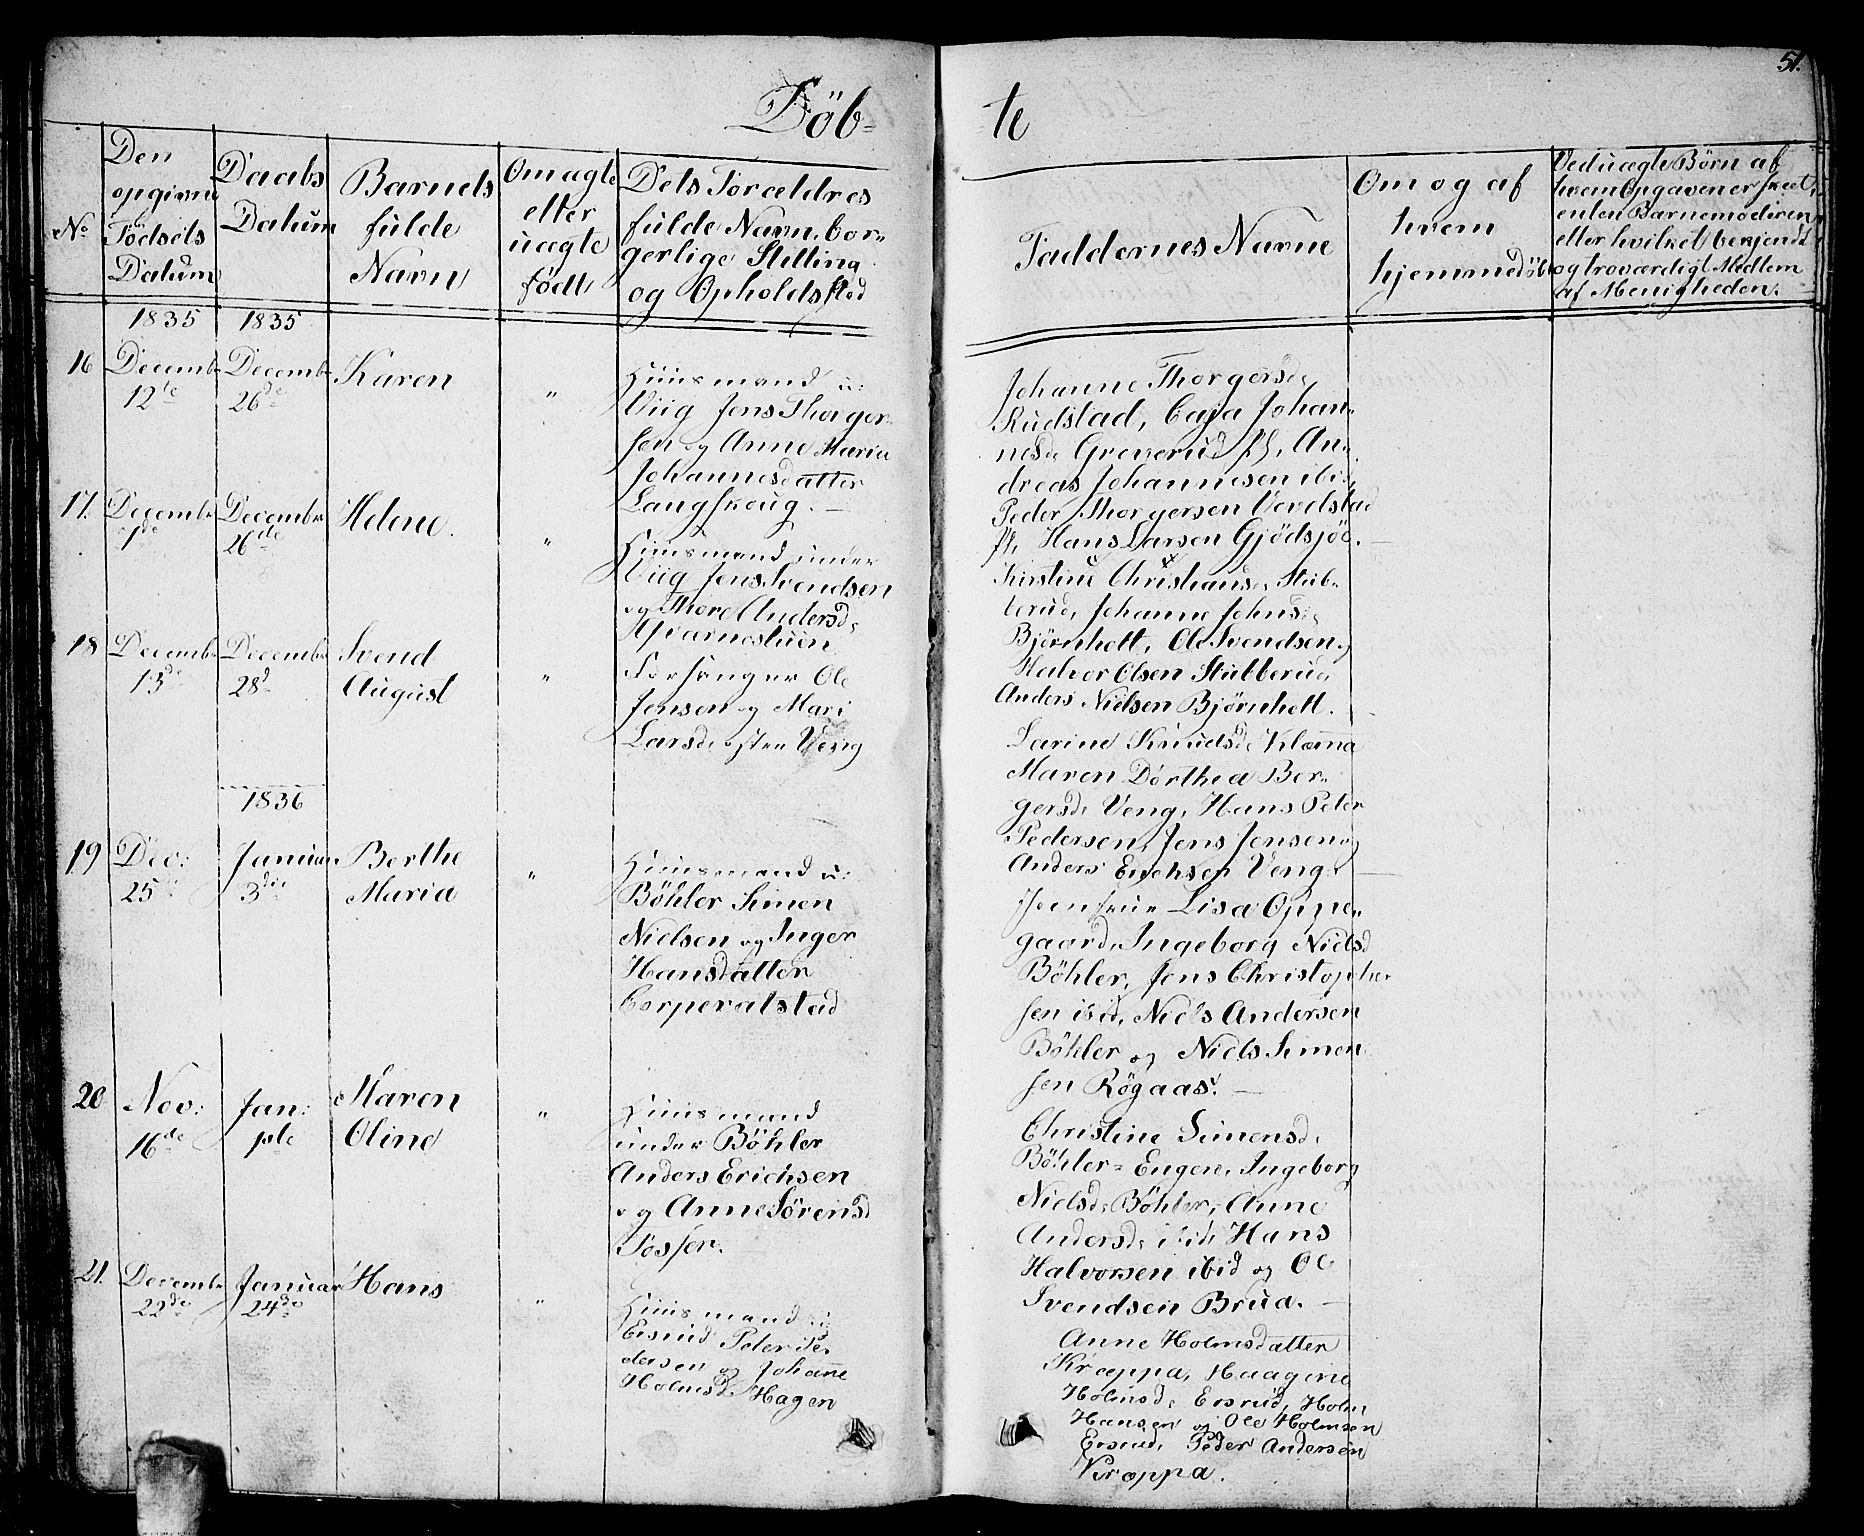 51.
Döb-
te
No
Den
opgivne
Födsels
Datum
Daabs
Datum
Barnets
fulde
Navn
Om ægte
eller
uægte
födt
Dets Forældres
fulde Navn, bor-
gerlige Stilling
og Opholdssted
Faddernes Navne
Om og af
hvem
hjemmedöbt
Ved uægte Børn af
hvem Opgaven er skeet,
enten Barnemoderen
eller hvilket bekjendt
og troværdigt Medlem
af Menigheden.
1835
1835
16
Decembr
12te
Decembr
26de
Karen
"
Huusmand u:
Viig Jens Thorger-
sen og Anne Maria
Johannesdatter
Langskoug. —
Johanne Thorgersd,
Rudstad, Caja Johan-
nesd, Greverud, An-
dreas Johannesen ibid,
Peder Thorgersen Vevelstad
Hans Larsen Gjödsjöe. —
17.
Decembr
7de
Decembr
26de
Helene.
"
Huusmand under
Viig Jens Svendsen
og Thore Andersd,
Kirstine Christians, Stub-
berud, Johanne Johnsd,
Bjørnholt, Ole Svendsen,
Halvor Olsen Stubberud,
Anders Nielsen Bjørnholt.
18
Decembr
13de
Decembr
28d
Svend
August
"
Forsanger Ole
Jensen og Mari
Larsd, østre Veng
Larine Knudsd, Klemma
Maren Dorthea Ber-
gersd, Veng, Hans Peter
Pedersen, Jens Jensen og
Anders Erichsen Veng. —
1836
19
Dec:
25
Januar
3die
Berthe
Maria
"
Huusmand u:
Böhler Simen
Nielsen og Inger
Hansdatter
Corperalstad
Lisa Oppe-
gaard, Ingeborg Nielsd
Böhler, Jens Christopher-
sen ibid, Niels Andersen
Böhler og Niels Simen-
sen Rögaas. —
20
Nov:
16de
Jan:
1ste
Maren
Oline
"
Huusmand
under Böhler
Anders Erichsen
og Anne Sörensd
Fosser.
Christine Simensd,
Böhler-Engen, Ingeborg
Nielsd, Böhler, Anne
Andersd, ibid, Hans
Halvorsen ibid og Ole
Svendsen Brua. —
21.
Decembr
22de
Januar
24de
Hans
"
Huusmand u:
Ersrud Peder Pe-
dersen og Johanne
Holmsd, Hagen
Anne Holmsdatter
Kræppa, Haagine
Holmsd, Ersrud, Holm
Hansen og Ole Holmsen
Ersrud, Peder Andersen
Kræppa.